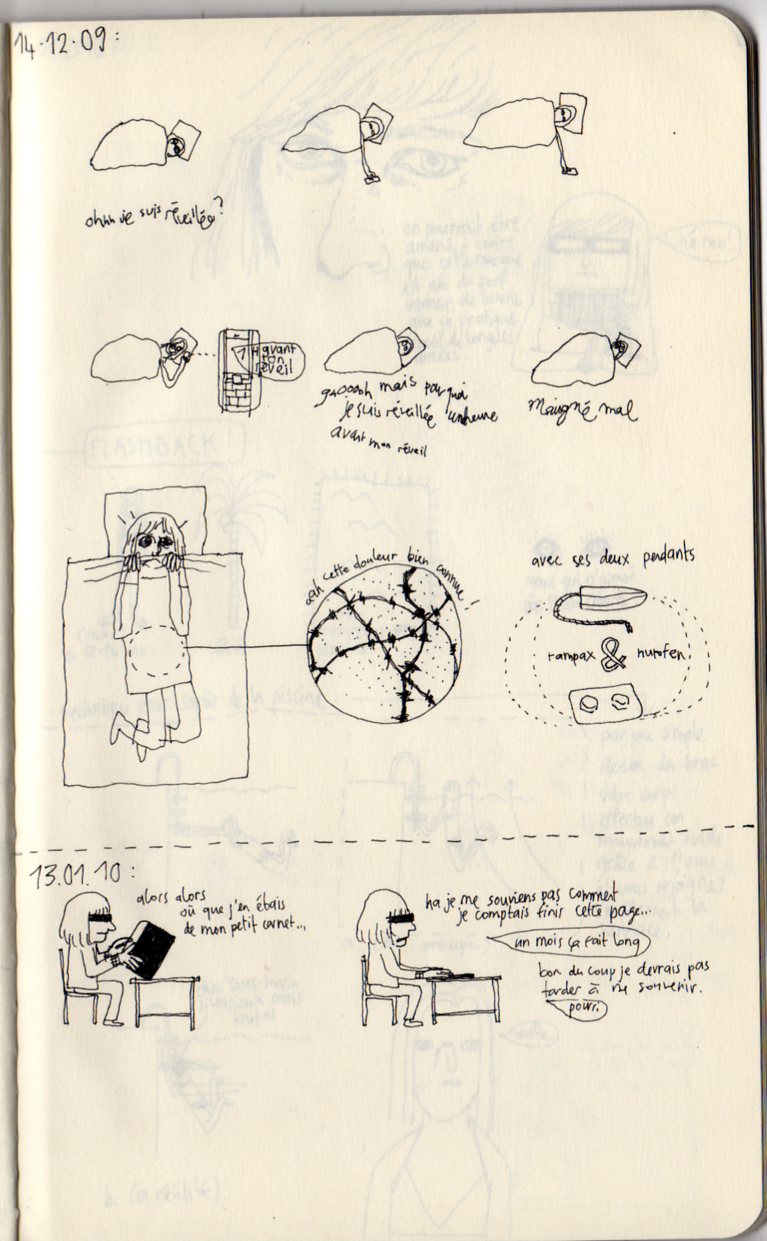 14.12.09:
ohhh je suis réveillée?
1H avant
ton
réveil
gaooooh mais pourquoi
je suis réveillée une heure
avant mon réveil
Maigné mal
aah cette douleur bien connue!
avec ses deux pendants
tampax & nurofen
13.01.10:
alors alors
où que j'en étais
de mon petit carnet...
ha je me souviens pas comment
je comptais finir cette page...
un mois ça fait long
bon du coup je devrais pas
tarder à me souvenir.
pourri
FLASHBACK!